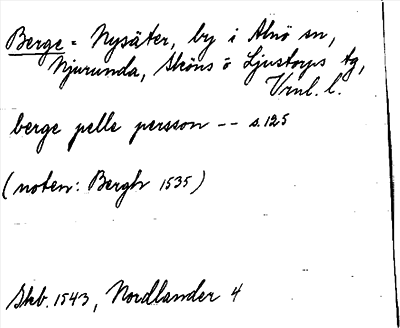 Berge = Nysäter, by i Alnö sn,
Njurunda, Sköns o Ljustorps tg,
Vrnl. l.
berge pelle persson -- s. 125
(noten: Bergh 1535)
Skb. 1543, Nordlander 4